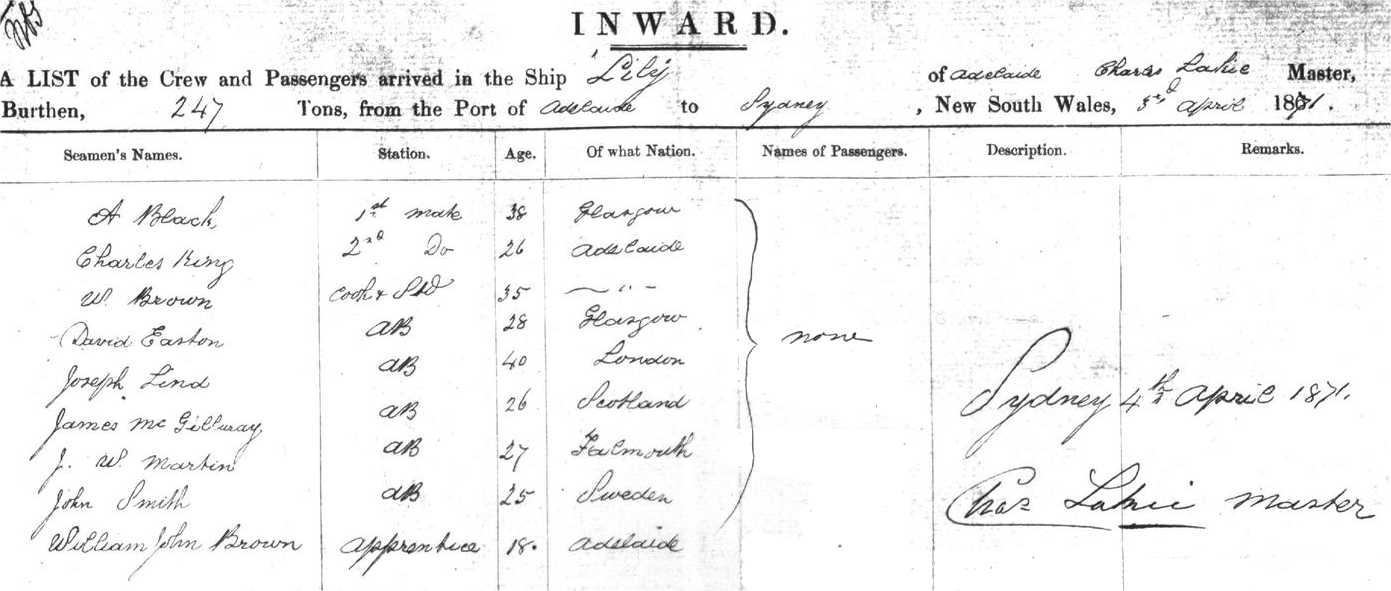 INWARD.
A LIST of the Crew and Passengers arrived in the Ship Lily of Adelaide Charles Lakie Master,
Burthen, 247 Tons, from the Port of Adelaide to Sydney, New South Wales, 3rd April 1871.
Seamen's Names. Station. Age. Of what Nation. Names of Passengers. Description. Remarks.
A Black 1st mate 38 Glasgow
Charles King 2nd Do 26 Adelaide
W. Brown Cook & Std 35 — " —
David Easton AB 28 Glasgow none
Joseph Lind AB 40 London
James McGillvray AB 26 Scotland Sydney 4th April 1871.
J. W. Martin AB 27 Falmouth
John Smith AB 25 Sweden Chas Lakie Master
William John Brown apprentice 18. Adelaide